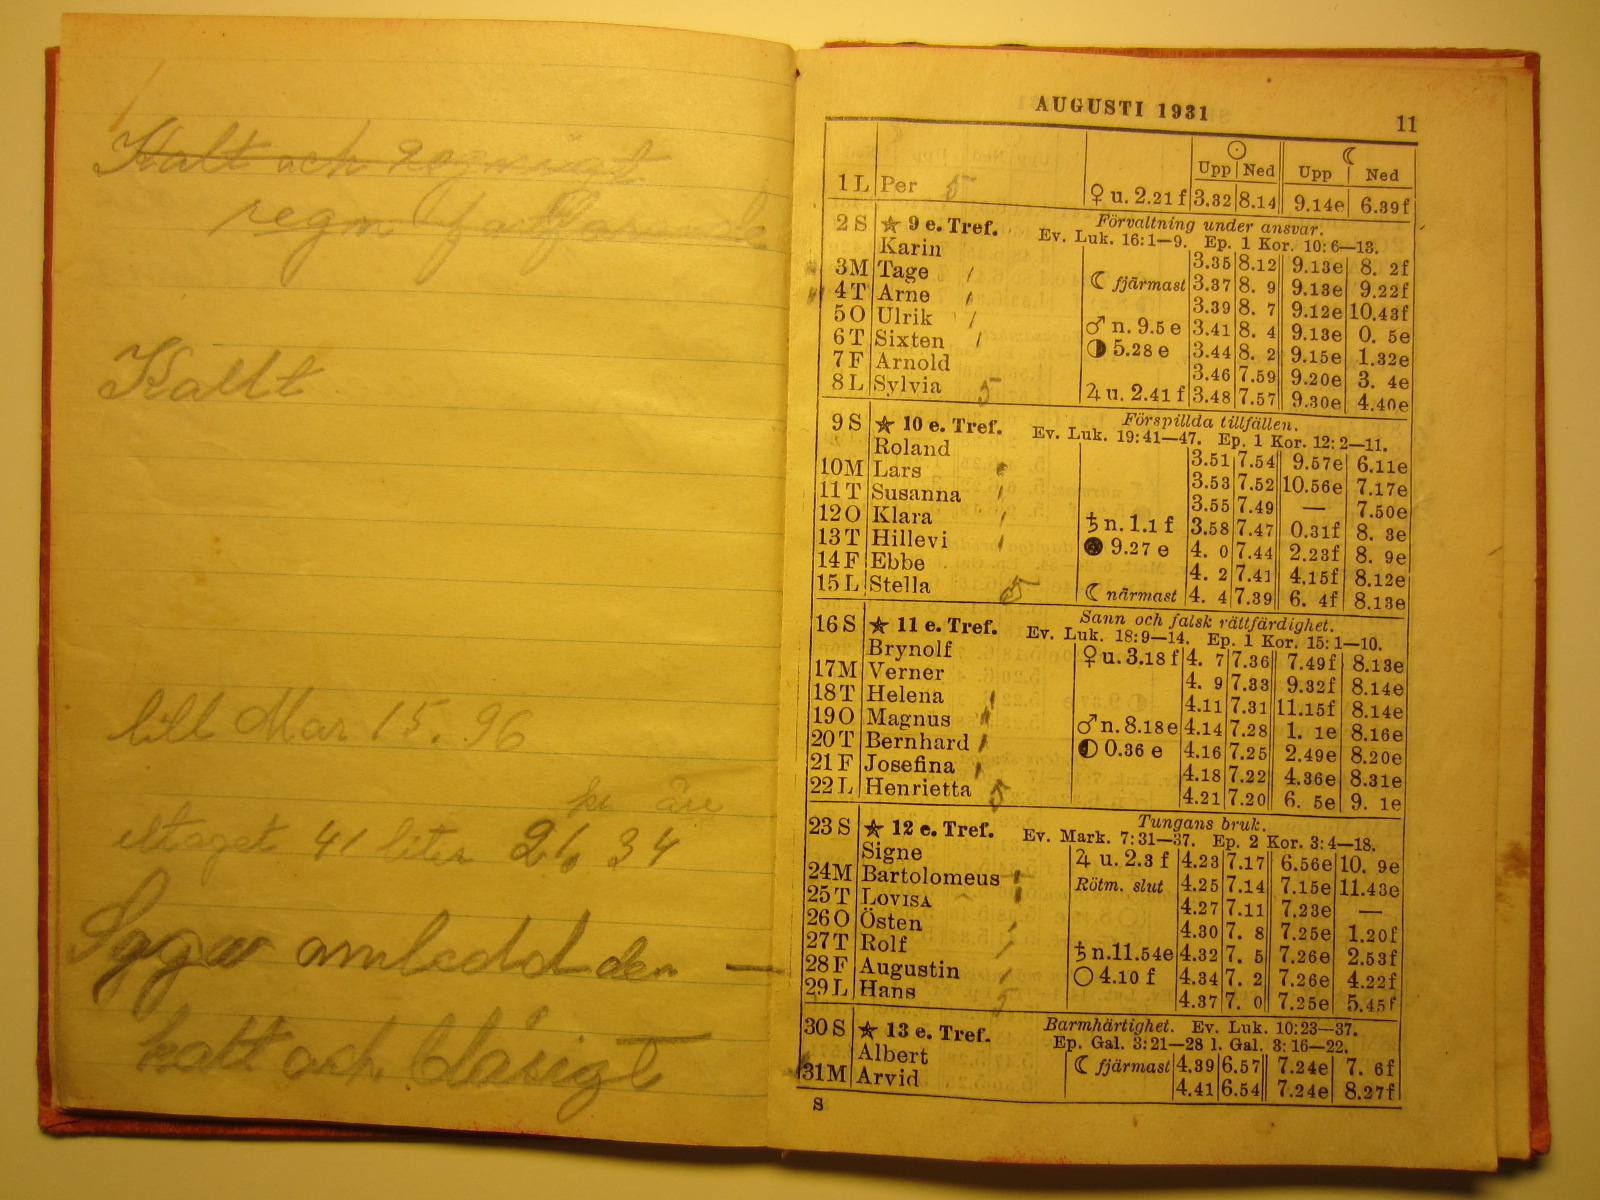 Kalt och regnigt
regn
Kallt
till Mar 15.96
kr öre
uttaget 41 liter 26 34
Sygu
kalt och blåsigt
AUGUSTI 1931 11
☉ ☾
Upp Ned Upp Ned
1 L Per 5 ♀ u. 2.21 f 3.32 8.14 9.14e 6.39f
2 S ★ 9 e. Tref. Förvaltning under ansvar.
Ev. Luk. 16:1—9. Ep. 1 Kor. 10:6—13.
Karin 3.35 8.12 9.13e 8. 2f
3 M Tage ☾ fjärmast 3.37 8. 9 9.13e 9.22f
4 T Arne 3.39 8. 7 9.12e 10.43f
5 O Ulrik ♂ n. 9.5 e 3.41 8. 4 9.13e 0. 5e
6 T Sixten ◑ 5.28 e 3.44 8. 2 9.15e 1.32e
7 F Arnold 3.46 7.59 9.20e 3. 4e
8 L Sylvia 5 ♃ u. 2.41 f 3.48 7.57 9.30e 4.40e
9 S ★ 10 e. Tref. Förspillda tillfällen.
Ev. Luk. 19:41—47. Ep. 1 Kor. 12:2—11.
Roland 3.51 7.54 9.57e 6.11e
10 M Lars 3.53 7.52 10.56e 7.17e
11 T Susanna 3.55 7.49 — 7.50e
12 O Klara ♄ n. 1.1 f 3.58 7.47 0.31f 8. 3e
13 T Hillevi ● 9.27 e 4. 0 7.44 2.23f 8. 9e
14 F Ebbe 4. 2 7.41 4.15f 8.12e
15 L Stella 5 ☾ närmast 4. 4 7.39 6. 4f 8.13e
16 S ★ 11 e. Tref. Sann och falsk rättfärdighet.
Ev. Luk. 18:9—14. Ep. 1 Kor. 15:1—10.
Brynolf ♀ u. 3.18 f 4. 7 7.36 7.49f 8.13e
17 M Verner 4. 9 7.33 9.32f 8.14e
18 T Helena 4.11 7.31 11.15f 8.14e
19 O Magnus ♂ n. 8.18e 4.14 7.28 1. 1e 8.16e
20 T Bernhard ◐ 0.36 e 4.16 7.25 2.49e 8.20e
21 F Josefina 4.18 7.22 4.36e 8.31e
22 L Henrietta 5 4.21 7.20 6. 5e 9. 1e
23 S ★ 12 e. Tref. Tungans bruk.
Ev. Mark. 7:31—37. Ep. 2 Kor. 3:4—18.
Signe ♃ u. 2.3 f 4.23 7.17 6.56e 10. 9e
24 M Bartolomeus Rötm. slut 4.25 7.14 7.15e 11.43e
25 T LOVISA 4.27 7.11 7.23e —
26 O Östen 4.30 7. 8 7.25e 1.20f
27 T Rolf ♄ n. 11.54e 4.32 7. 5 7.26e 2.53f
28 F Augustin ○ 4.10 f 4.34 7. 2 7.26e 4.22f
29 L Hans 5 4.37 7. 0 7.25e 5.45f
30 S ★ 13 e. Tref. Barmhärtighet. Ev. Luk. 10:23—37.
Ep. Gal. 3:21—28 l. Gal. 3:16—22.
Albert ☾ fjärmast 4.39 6.57 7.24e 7. 6f
31 M Arvid 4.41 6.54 7.24e 8.27f
S